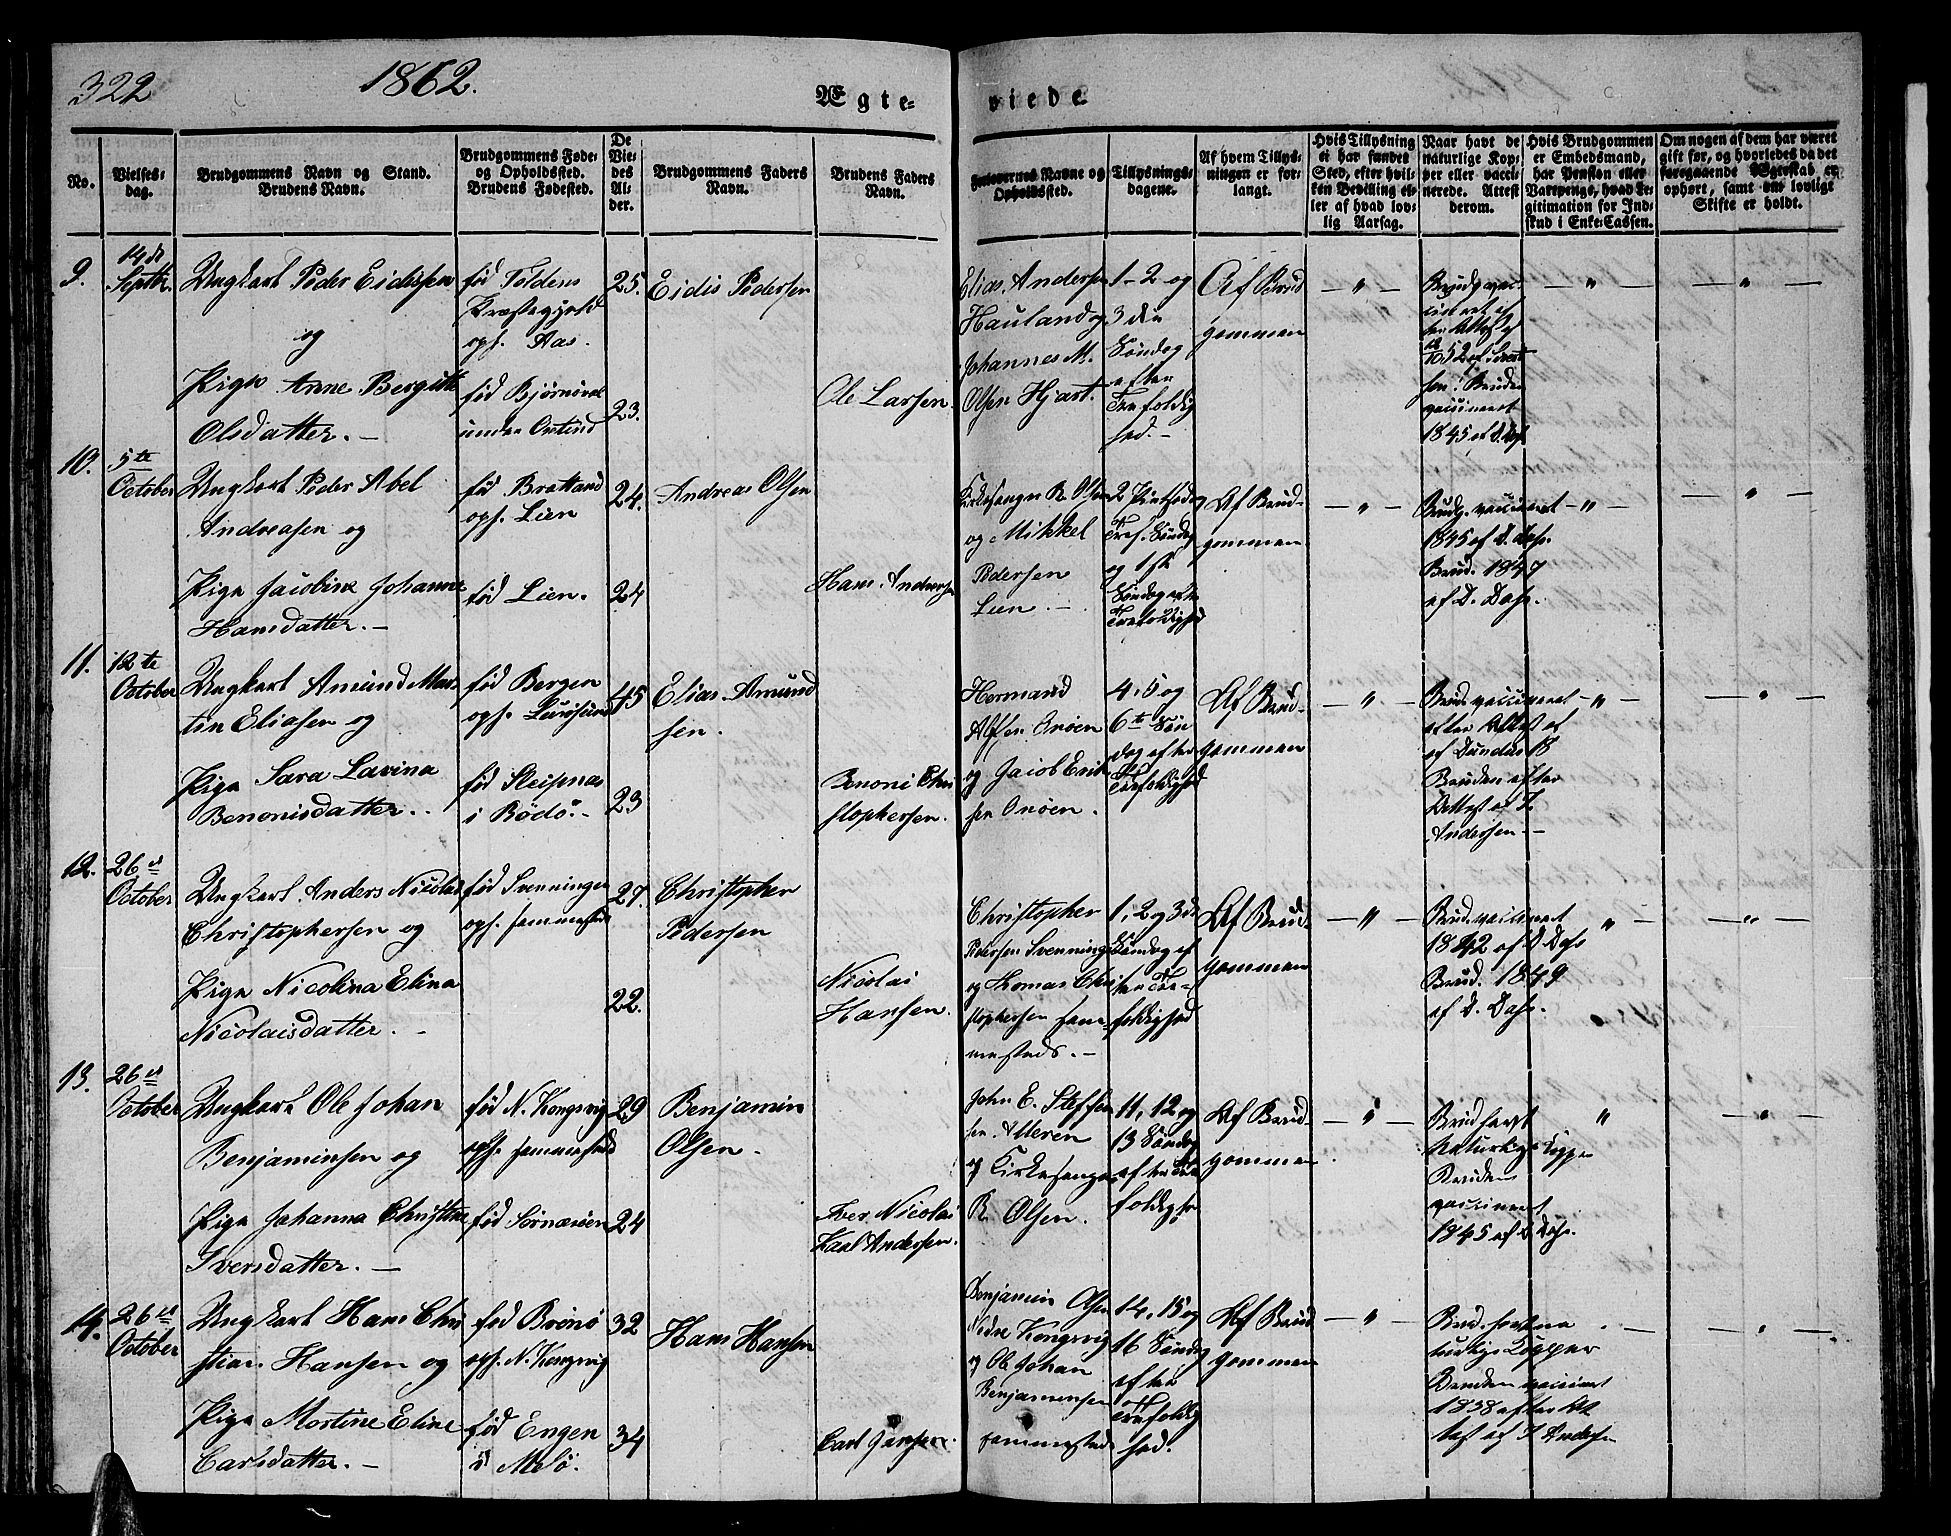 322
1862.
Ægteviede
No.
Vielsesdag.
Brudgommens Navn og Stand.
Brudens Navn.
Brudgommens Føde-
og Opholdssted.
Brudens Fødested.
De
Vie-
des
Al-
der.
Brudgommens Faders
Navn.
Brudens Faders
Navn.
Forlovernes Navne og
Opholdssted.
Tillysnings-
dagene.
Af hvem Tillys-
ningen er for-
langt.
Hvis Tillysning
ei har fundet
Sted, efter hvil-
ken Bevilling el-
ler af hvad lov-
lig Aarsag.
Naar havt de
naturlige Kop-
per eller vacci-
nerede. Attest
derom.
Hvis Brudgommen
er Embedsmand,
har Pension eller
Vartpenge, hvad Le-
gitimation for Ind-
skud i Enke-Cassen.
Om nogen af dem har været
gift før, og hvorledes da det
foregaaende Ægteskab er
ophørt, samt om lovligt
Skifte er holdt.
9.
14de
Septbr.
Ungkarl Peder Eidissen
og
Pige Anne Bergitte
Olsdatter. —
fød Foldens
Præstegjeld
oph. Aas.
fød Bjørnøvel
under
25.
23.
Eidis Pedersen
Ole Larsen
Elias Andersen
Hauland og
Johannes M.
Olsen Hjart.
1-2 og
3 die
Søndag
efter
Trefoldig
hed. -
Af Brud
gommen
— " —
Brudg. vac-
1852 af
Bruden
vaccineret
1845 af D. Dass
— " —
— " —
10.
5te
October
Ungkarl Peder Abel
Andreasen og
Pige Jacobine Johanne
Hansdatter. —
fød Brattland
oph. Lien
fød Lien.
24.
24
Andreas Olsen
Hans Andersen
Kirkesanger R. Olsen
og Mikkel
Pedersen
Lien. —
2 Pintsedag
Tref. Søndag
og 1ste
Søndag efter
Trefoldighed
Af Brud-
gommen
— " —
Brudg. vaccineret
1845 af D. Dass.
Brud. 1847
af D. Dass.
— " —
— " —
11.
12te
October
Ungkarl Amund Mar-
tin Eliasen og
Pige Sara Lavina
Benonisdatter. .
fød Bergen
oph. Lurøsund
fød Sleipnæs
i Rødø. —
45
23
Elias Amund
sen.
Benoni Chri
stophersen.
Hermand
Olsen Onøen
og Jacob Erik
sen Onøen.
4, 5 og
6te Søn
dag efter
Trefoldighed
Af Brud-
gommen
— " —
Brudg. vaccineret
efter Attest af
af Dundas B
Bruden efter
Attest af I.
Andersen —
— " —
— " —
12.
26de
October
Ungkarl Anders Nicolai
Christophersen og
Pige Nicolina Elina
Nicolaisdatter. —
fød Svenningen
oph. sammested
27.
22.
Christopher
Pedersen
Nicolai
Hansen.
Christopher
Pedersen Svenningen
og Thomas Chri
stophersen sam-
mesteds. —
1, 2 og 3de
Søndag ef-
ter Tre-
foldighed
Af Brud-
gommen
— " —
Brudg. vaccineret
1842 af D. Dass
Brud. 1849
af D. Dass.
" —
— " —
13.
26de
October
Ungkarl Ole Johan
Benjaminsen og
Pige Johanna Christine
Iversdatter. —
fød N. Kongsvig
oph. sammested
fød Sørnæsøen
29
24
Benjamin
Olsen.
Iver Nicolai
Karl Andersen.
John E. Steffen
sen Alteren
og Kirkesanger
R. Olsen.
11, 12 og
13 Søndag
efter Tre
foldigh
Af Brud-
gommen
— " —
Brud. havt
Naturlige Kopper
Bruden
vaccineret
1845 af D. Dass.
"
— " —
14.
26de
October
Ungkarl Hans Chri
stian Hansen og
Pige Martine Eline
Carlsdatter. —
fød Brønø
oph. N. Kongsvig
fød Engen
i Melø.
32
34
Hans Hansen
Carl Jensen.
Benjamin Olsen
Nedre Kongsvig
og Ole Johan
Benjaminsen
sammesteds
14, 15 og
16 Søndag
efter
Trefoldig
hed.
Af Brud
gommen
— " —
Brud. havt na
turlige Kopper
Bruden vaccineret
1838 efter At
test af I Andersen
— " —